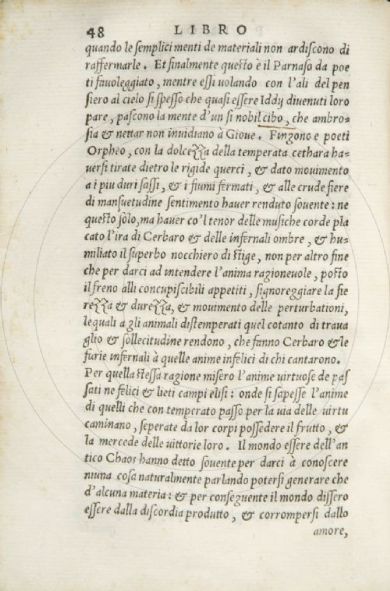 48 LIBRO
quando le semplici menti de materiali non ardiscono di
raffermarle. Et finalmente questo è il Parnaso da poe
ti fauoleggiato, mentre essi uolando con l'ali del pen
siero al cielo si spesso che quasi essere Iddy diuenuti loro
pare, pascono la mente d'un si nobil cibo, che ambro-
sia & nettar non inuidiano à Gioue. Fingono e poeti
Orpheo, con la dolcezza della temperata cethara ha-
uersi tirate dietro le rigide querci, & dato mouimento
a i piu duri sassi, & i fiumi fermati, & alle crude fiere
di mansuetudine sentimento hauer renduto souente: ne
questo solo, ma hauer co'l tenor delle musiche corde pla
cato l'ira di Cerbaro & delle infernali ombre, & hu-
miliato il superbo nocchiero di stige, non per altro fine
che per darci ad intendere l'anima ragioneuole, posto
il freno alli concupiscibili appetiti, signoreggiare la fie
rezza & durezza, & mouimento delle perturbationi,
lequali a gli animali distemperati quel cotanto di traua
glio & sollecitudine rendono, che fanno Cerbaro & le
furie infernali à quelle anime infelici di chi cantarono.
Per quella stessa ragione misero l'anime uirtuose de pas
sati ne felici & lieti campi elisi: onde si sapesse l'anime
di quelli che con temperato passo per la uia delle uirtu
caminano, seperate da lor corpi possedere il frutto, &
la mercede delle uittorie loro. Il mondo essere dell'an
tico Chaos hanno detto souente per darci à conoscere
niuna cosa naturalmente parlando potersi generare che
d'alcuna materia: & per conseguente il mondo dissero
essere dalla discordia produtto, & corrompersi dallo
amore,